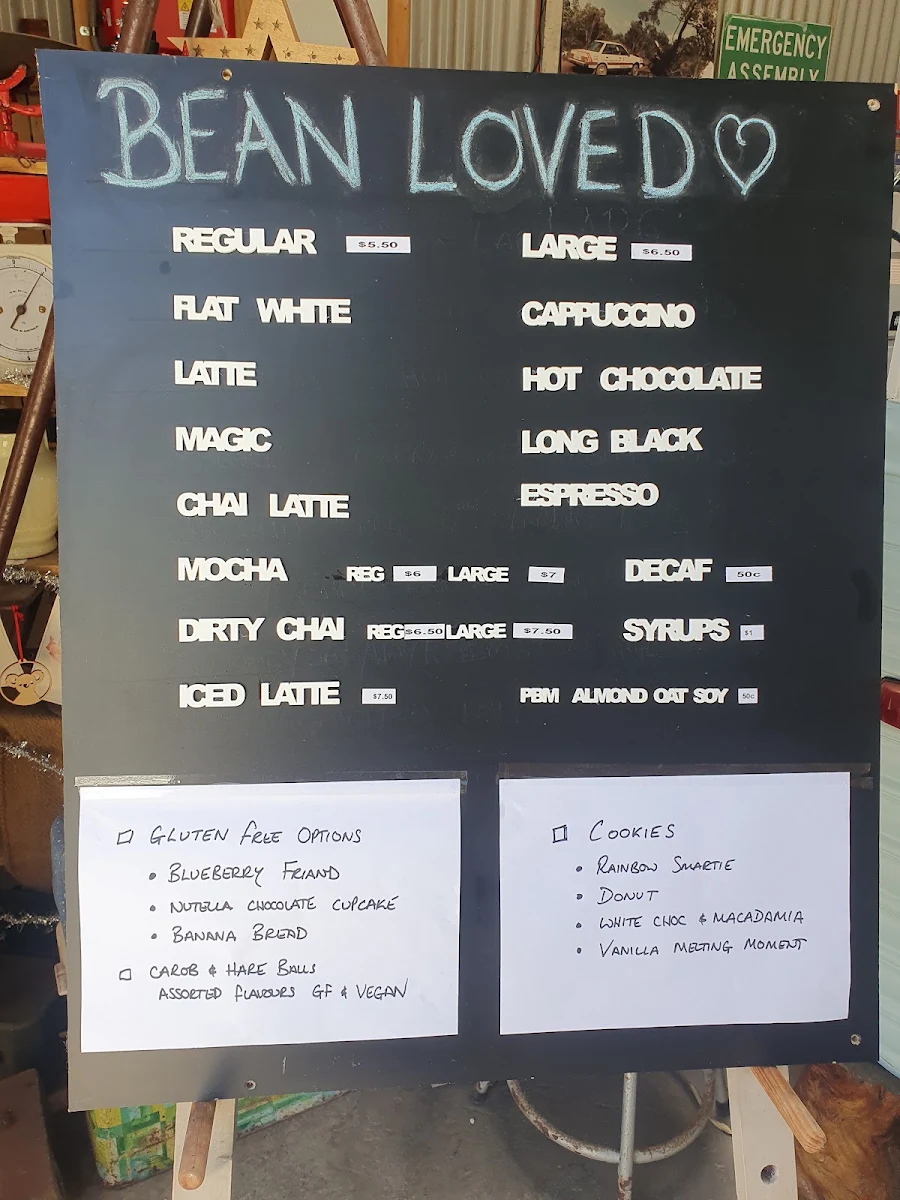 EMERGENCY
ASSEMBLY
BEAN LOVED
REGULAR $5.50
LARGE $6.50
FLAT WHITE
CAPPUCCINO
LATTE
HOT CHOCOLATE
MAGIC
LONG BLACK
CHAI LATTE
ESPRESSO
MOCHA REG $6 LARGE $7
DECAF 50c
DIRTY CHAI REG $6.50 LARGE $7.50
SYRUPS $1
ICED LATTE $7.50
PBM ALMOND OAT SOY 50c
GLUTEN FREE OPTIONS
• BLUEBERRY FRIAND
• NUTELLA CHOCOLATE CUPCAKE
• BANANA BREAD
CAROB & HARE BALLS
ASSORTED FLAVOURS GF & VEGAN
COOKIES
• RAINBOW SMARTIE
• DONUT
• WHITE CHOC & MACADAMIA
• VANILLA MELTING MOMENT